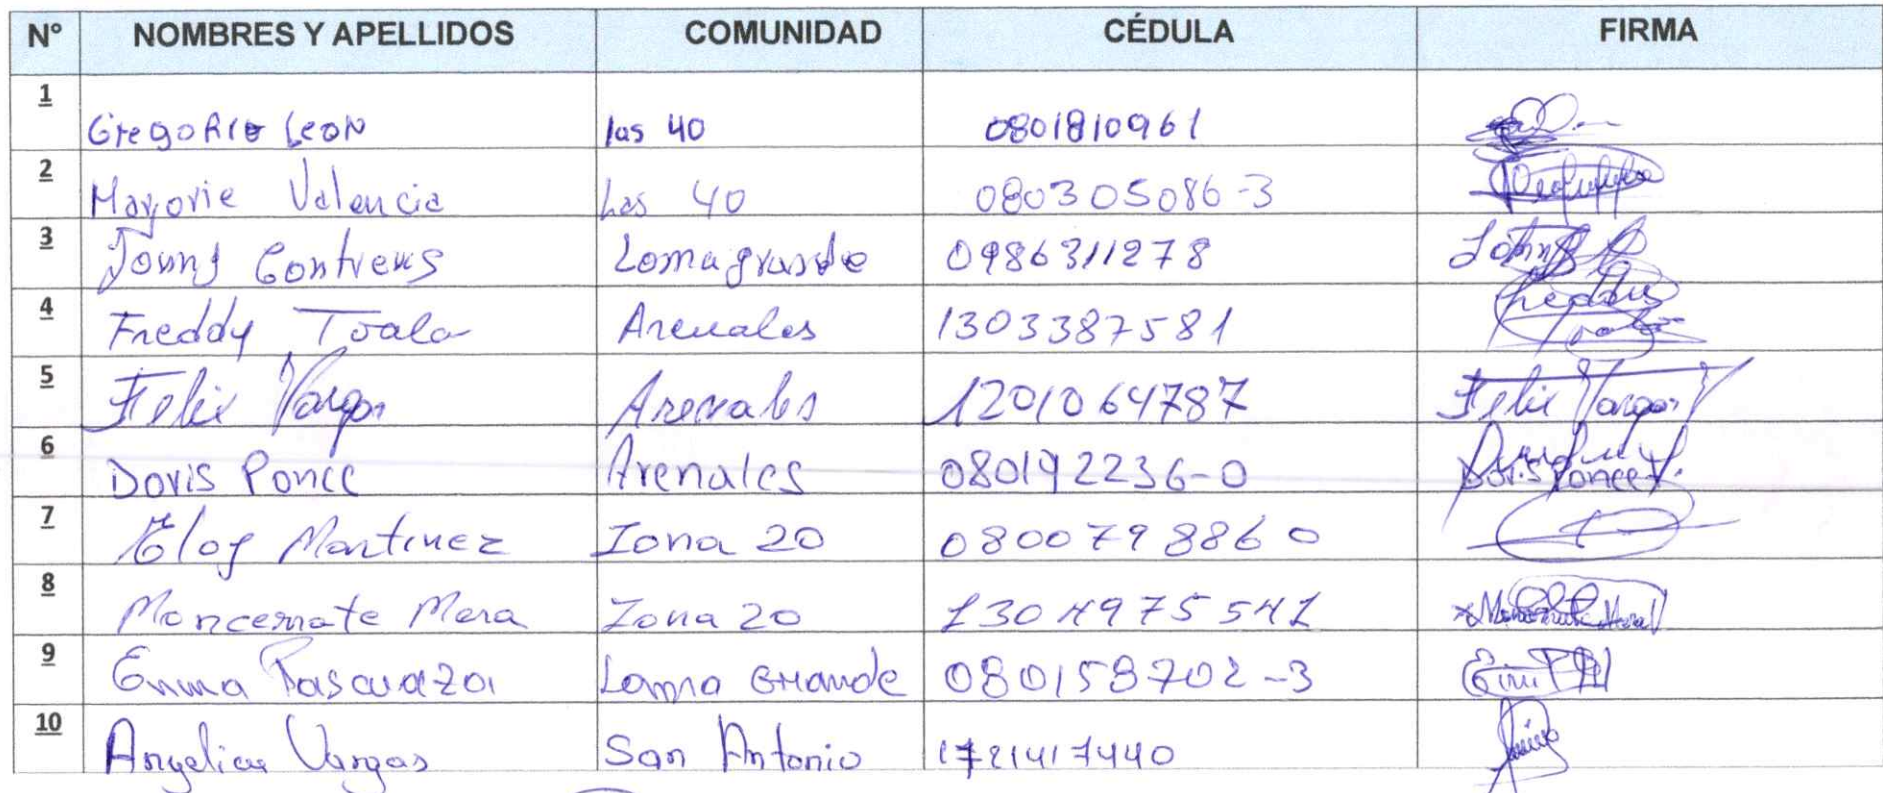 N° NOMBRES Y APELLIDOS COMUNIDAD CÉDULA FIRMA
1 Gregorio Leon las 40 0801810961
2 Marjorie Valencia Las 40 080305086-3
3 Jonny Contreras Lomagrande 0986311278 Johnn
4 Freddy Toala Arenales 1303387581 Freddy Toala
5 Felix Vargas Arenales 1201064787 Felix Vargas
6 Doris Ponce Arenales 080192236-0 Doris Ponce
7 Eloy Martinez Zona 20 0800798860
8 Moncerrate Mera Zona 20 1304975541
9 Emma Pascuaza Loma Grande 080158702-3
10 Angelica Vargas San Antonio 1721417440